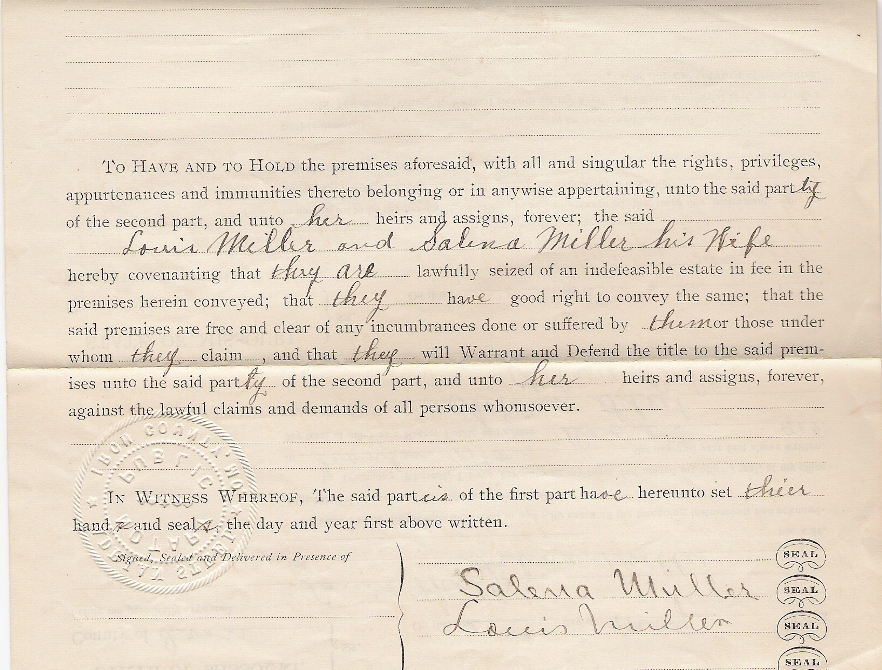 To Have and to Hold the premises aforesaid, with all and singular the rights, privileges,
appurtenances and immunities thereto belonging or in anywise appertaining, unto the said party
of the second part, and unto her heirs and assigns, forever; the said
Louis Miller and Salena Miller his Wife
hereby covenanting that they are lawfully seized of an indefeasible estate in fee in the
premises herein conveyed; that they have good right to convey the same; that the
said premises are free and clear of any incumbrances done or suffered by them or those under
whom they claim , and that they will Warrant and Defend the title to the said prem-
ises unto the said party of the second part, and unto her heirs and assigns, forever,
against the lawful claims and demands of all persons whomsoever.
In Witness Whereof, The said parteis of the first part have hereunto set thier
hands and seals, the day and year first above written.
Signed, Sealed and Delivered in Presence of
SEAL
Salena Miller SEAL
Louis Miller SEAL
SEAL
IRON COUNTY, MO.
PUBLIC
NOTARY